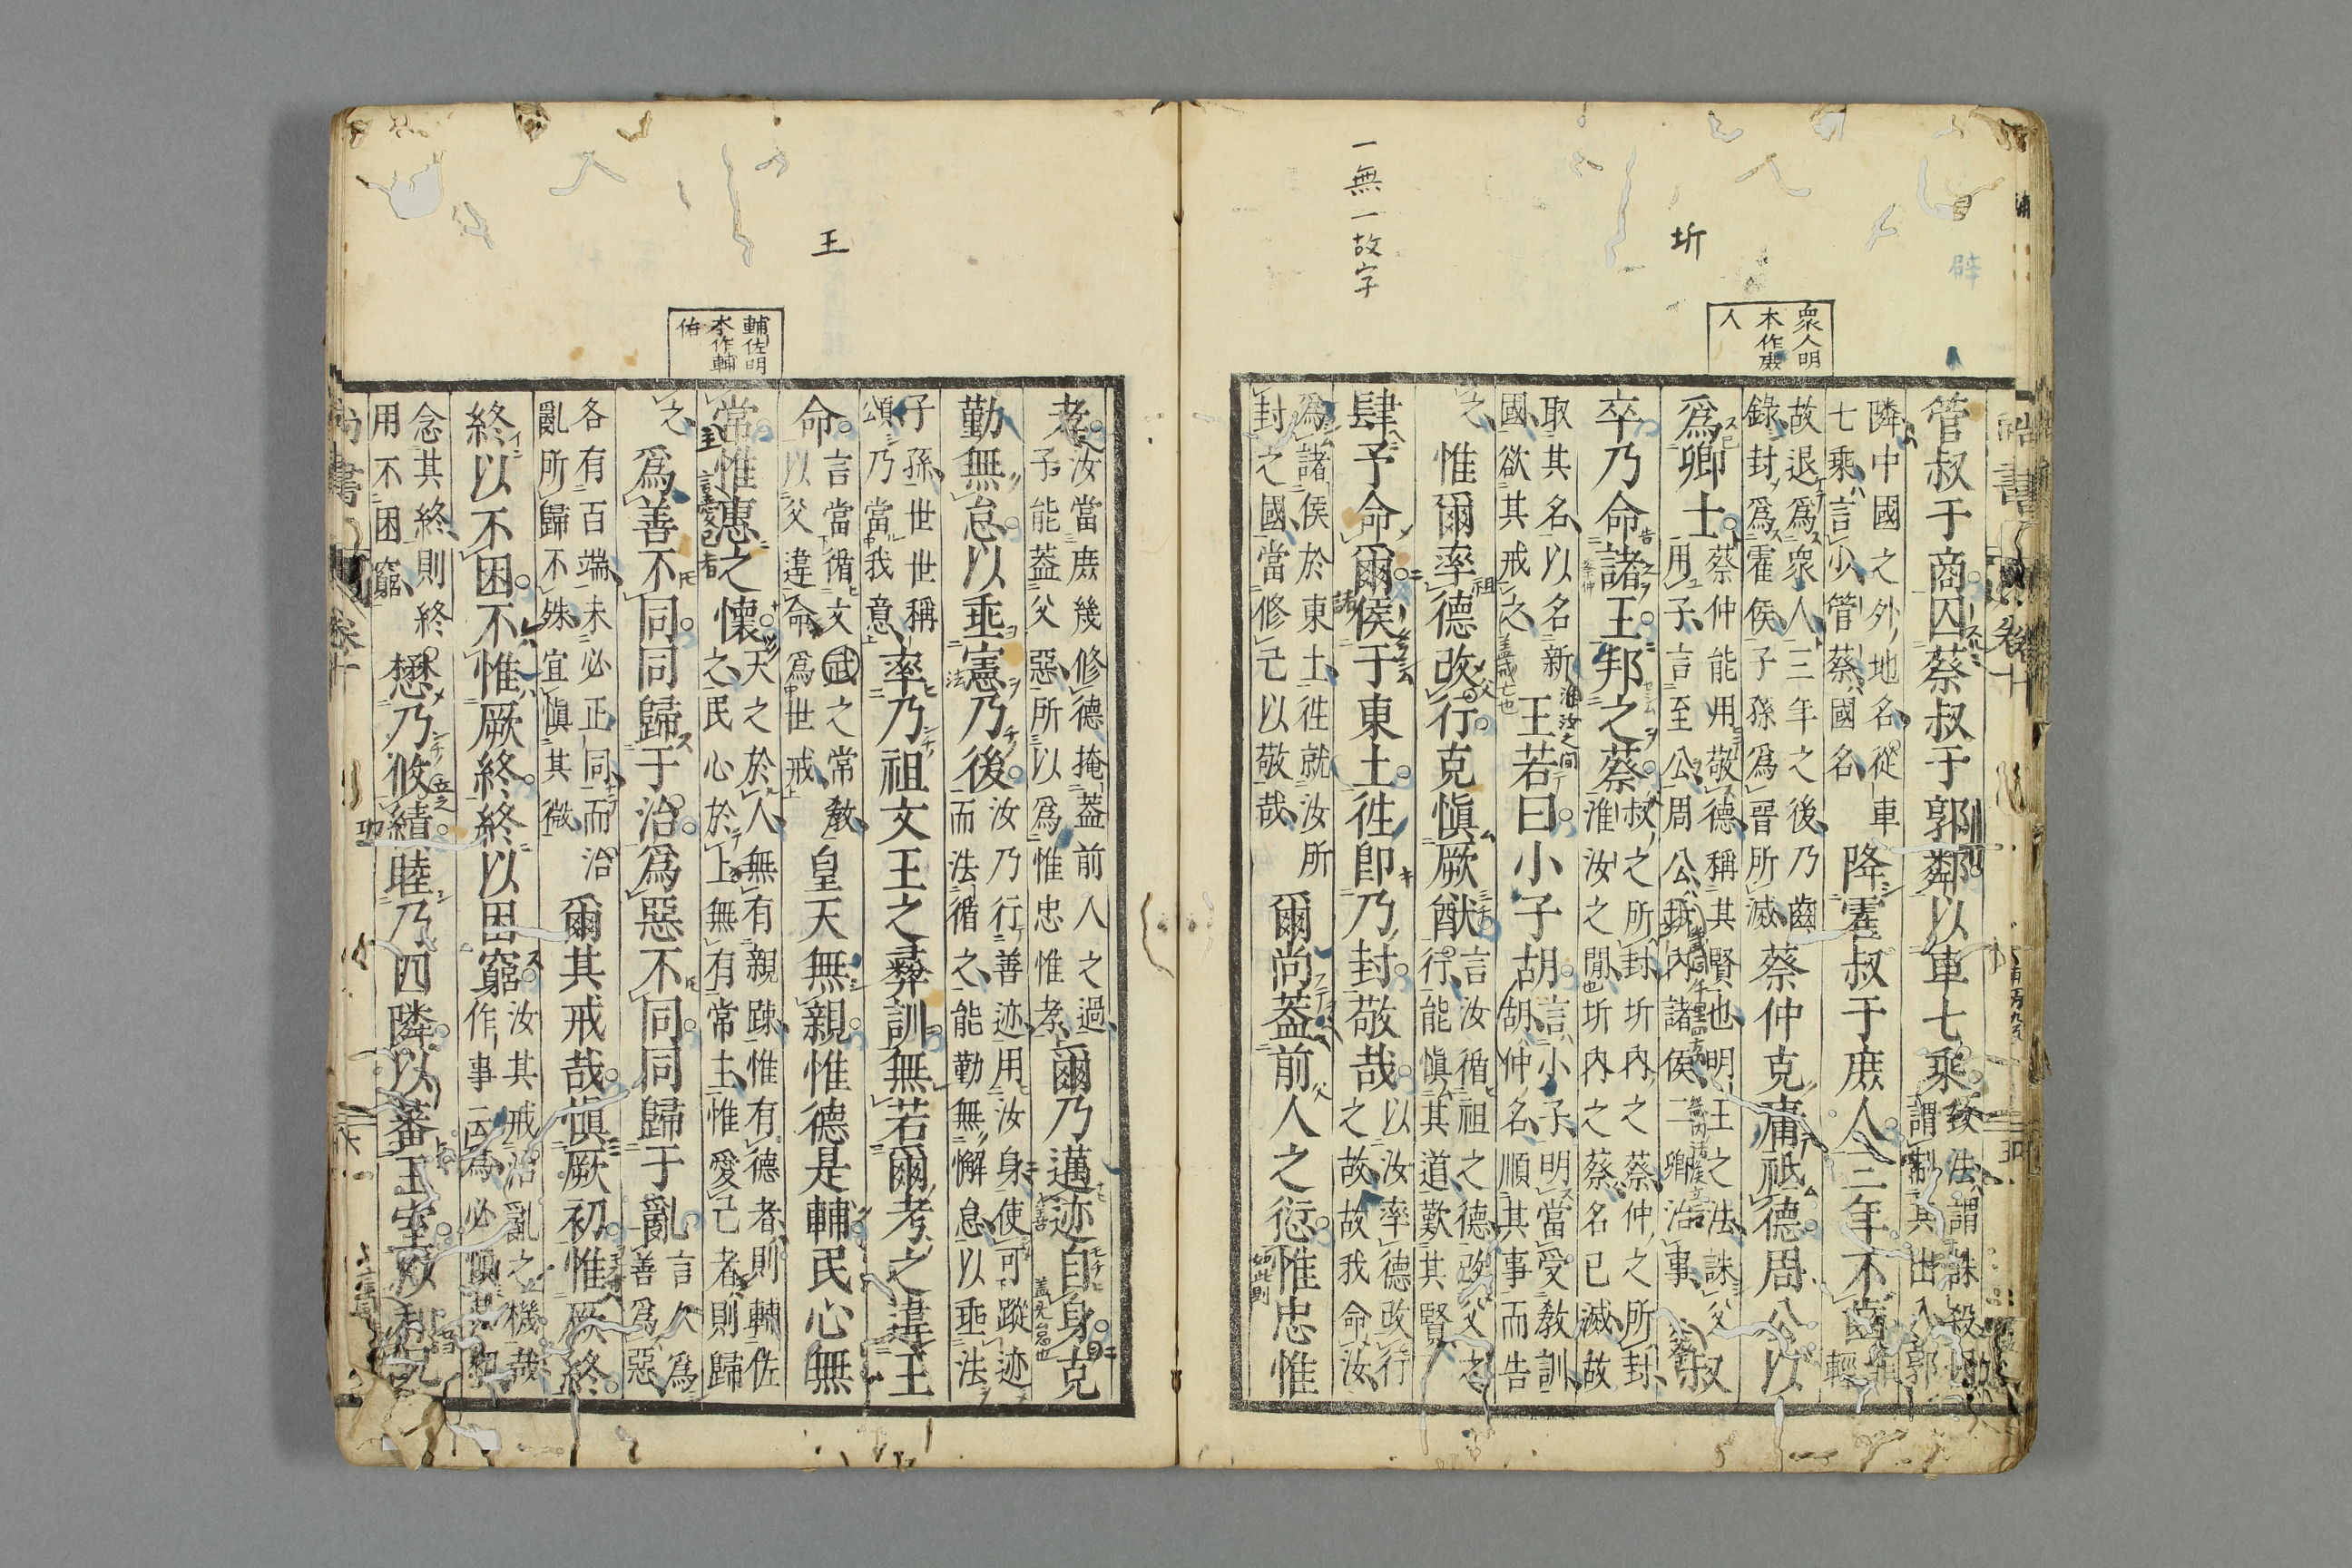 一無一故字
圻
衆人明
本作庶
人
管叔于商囚蔡叔于郭鄰以車七乘致法謂誅殺囚
謂制其出入郭
隣中國之外地名從車
七乘言少管蔡國名降霍叔于庶人三年不齒罪
輕
故退爲衆人三年之後乃齒
錄封爲霍侯子孫爲晉所滅蔡仲克庸祗德周公以
爲卿士蔡仲能用敬德稱其賢也明王之法誅父
用子言至公周公圻內諸侯二卿治事叔
卒乃命諸王邦之蔡叔之所封圻內之蔡仲之所封
淮汝之閒圻內之蔡名已滅故
取其名以名新
國欲其戒之王若曰小子胡言小子明當受敎訓
胡仲名順其事而告
之惟爾率德改行克愼厥猷言汝循祖之德改父之
行能愼其道歎其賢
肆予命爾侯于東土徃卽乃封敬哉以汝率德改行
之故故我命汝
爲諸侯於東土徃就汝所
封之國當修己以敬哉爾尚蓋前人之愆惟忠惟
王
輔佐明
本作輔
佑
孝汝當庶幾修德掩蓋前人之過
子能蓋父惡所以爲惟忠惟孝爾乃邁迹自身克
勤無怠以垂憲乃後汝乃行善迹用汝身使可蹤迹
而法循之能勤無懈怠以垂法
子孫世世稱
頌乃當我意率乃祖文王之彛訓無若爾考之違王
命言當循文武之常敎
以父違命爲世戒皇天無親惟德是輔民心無
常惟惠之懷天之於人無有親踈惟有德者則輔佐
之民心於上無有常主惟愛己者則歸
之爲善不同同歸于治爲惡不同同歸于亂言人爲
善爲惡
各有百端未必正同而治
亂所歸不殊宜愼其微爾其戒哉愼厥初惟厥終
終以不困不惟厥終終以困窮汝其戒治亂之機哉
作事云爲必愼其初
念其終則終
用不困窮懋乃攸績睦乃四隣以蕃王室以和兄